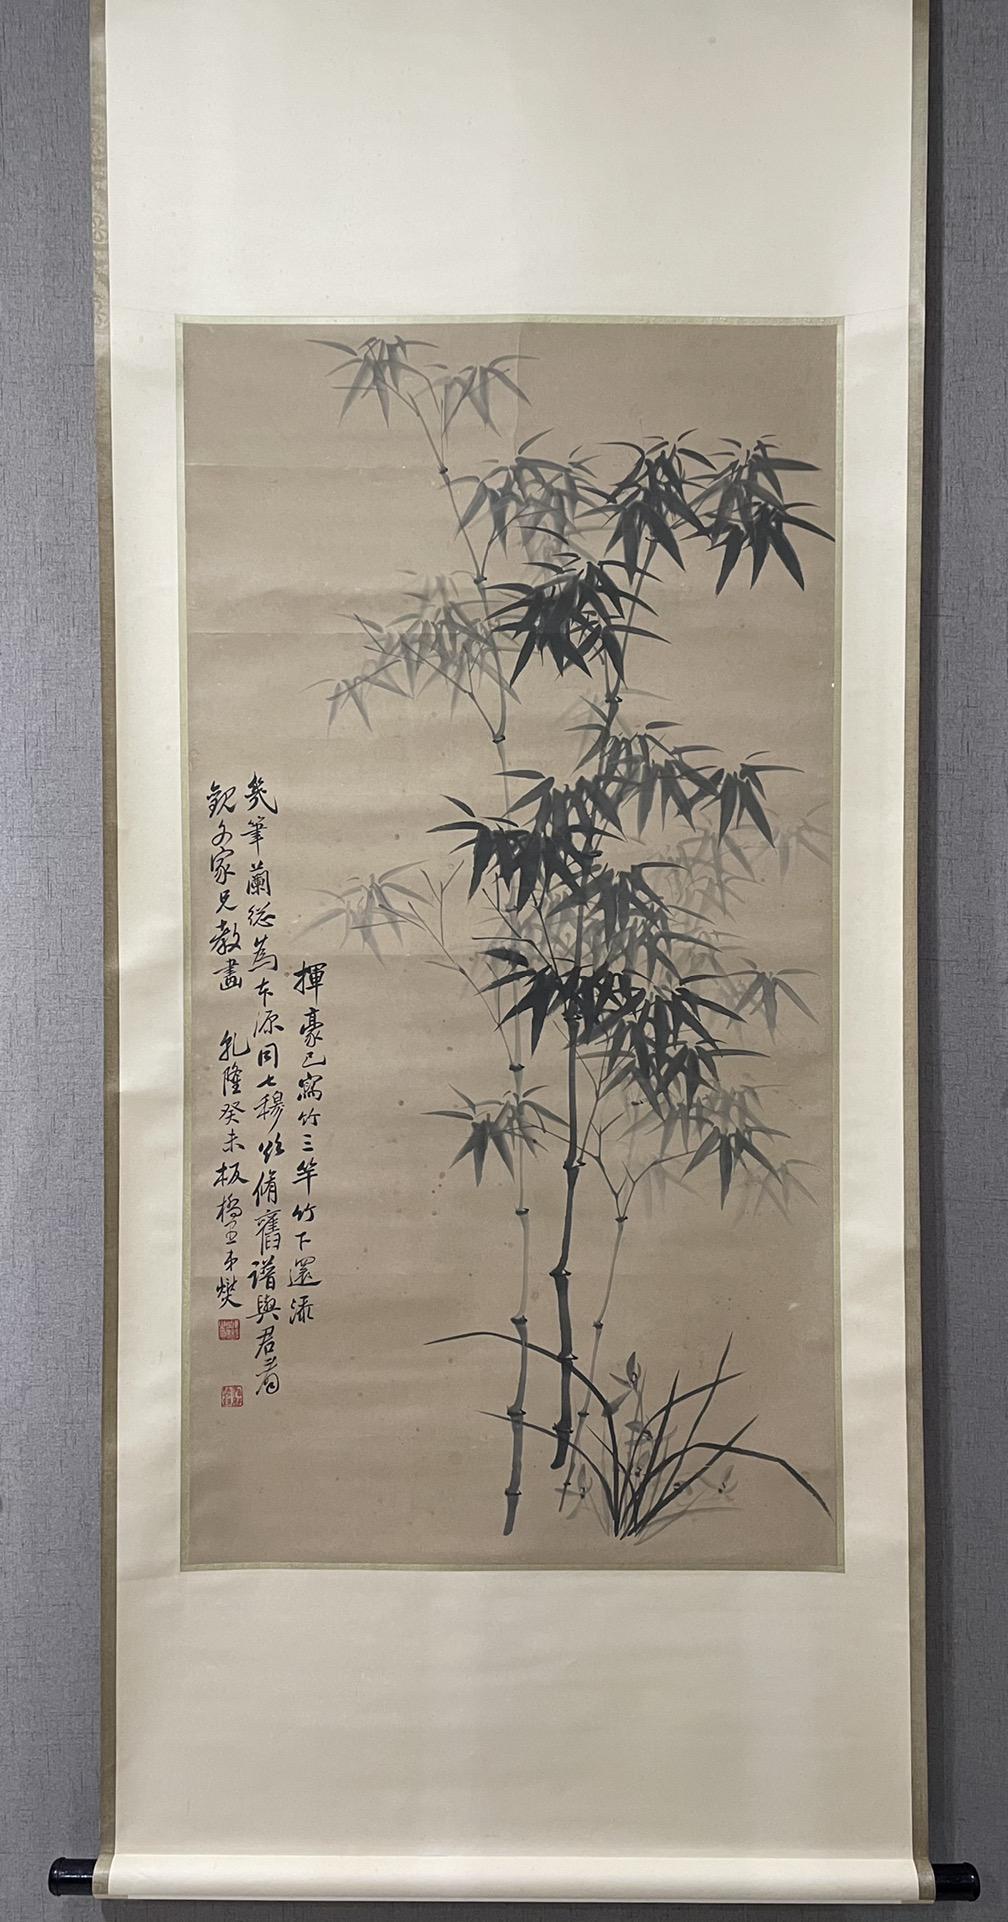 揮豪已寫竹三竿竹下還添
幾筆蘭總為本源同七穆欲脩舊譜與君看
觀文家兄教畫 乾隆癸未板橋弟燮